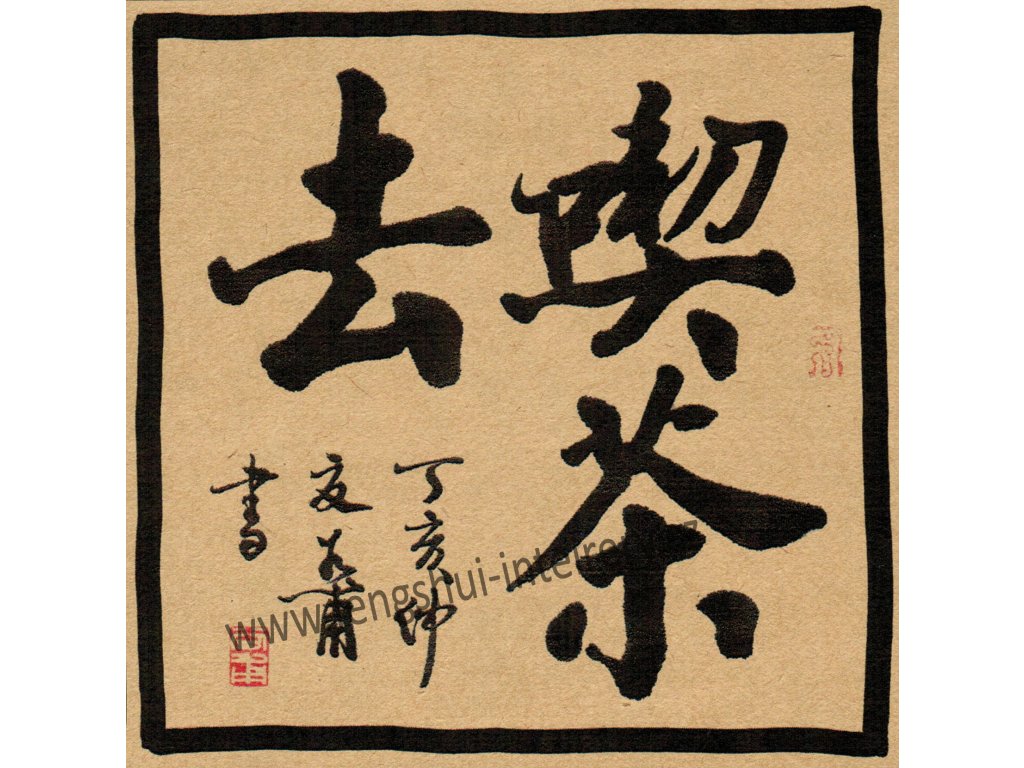 喫茶
去
丁亥仲
夏
書
www.fengshui-interier.cz